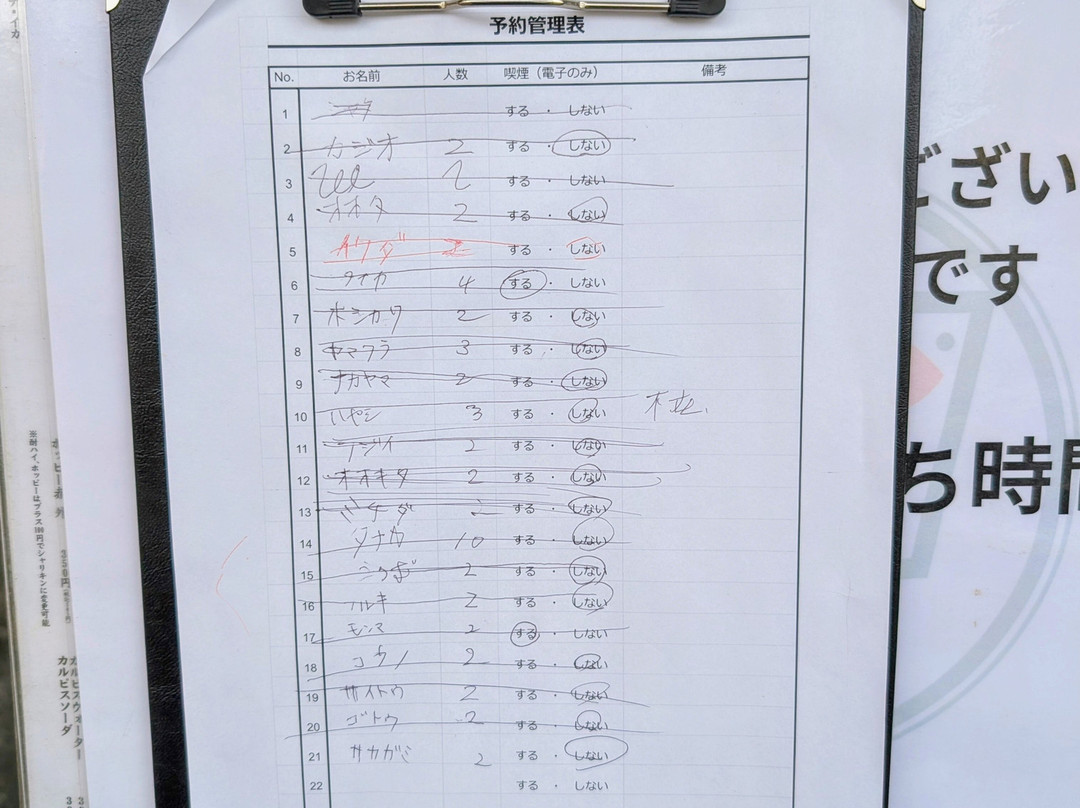 予約管理表
No. お名前 人数 喫煙（電子のみ） 備考
1 する・しない
2 カジオ 2 する・しない
3 する・しない
4 オオタ 2 する・しない
5 する・しない
6 タナカ 4 する・しない
7 ホシカワ 2 する・しない
8 ヤマウラ 3 する・しない
9 ナカヤマ 2 する・しない
10 ハヤシ 3 する・しない
11 フジイ 2 する・しない
12 オオキタ 2 する・しない
13 する・しない
14 タナカ 10 する・しない
15 2 する・しない
16 フルキ 2 する・しない
17 モンマ 2 する・しない
18 コウノ 2 する・しない
19 サイトウ 2 する・しない
20 ゴトウ 2 する・しない
21 サカガミ 2 する・しない
22 する・しない
ござい
です
ち時間
※酎ハイ、ホッピーはプラス100円でシャリキンに変更可能
カルピスウォーター
カルピスソーダ